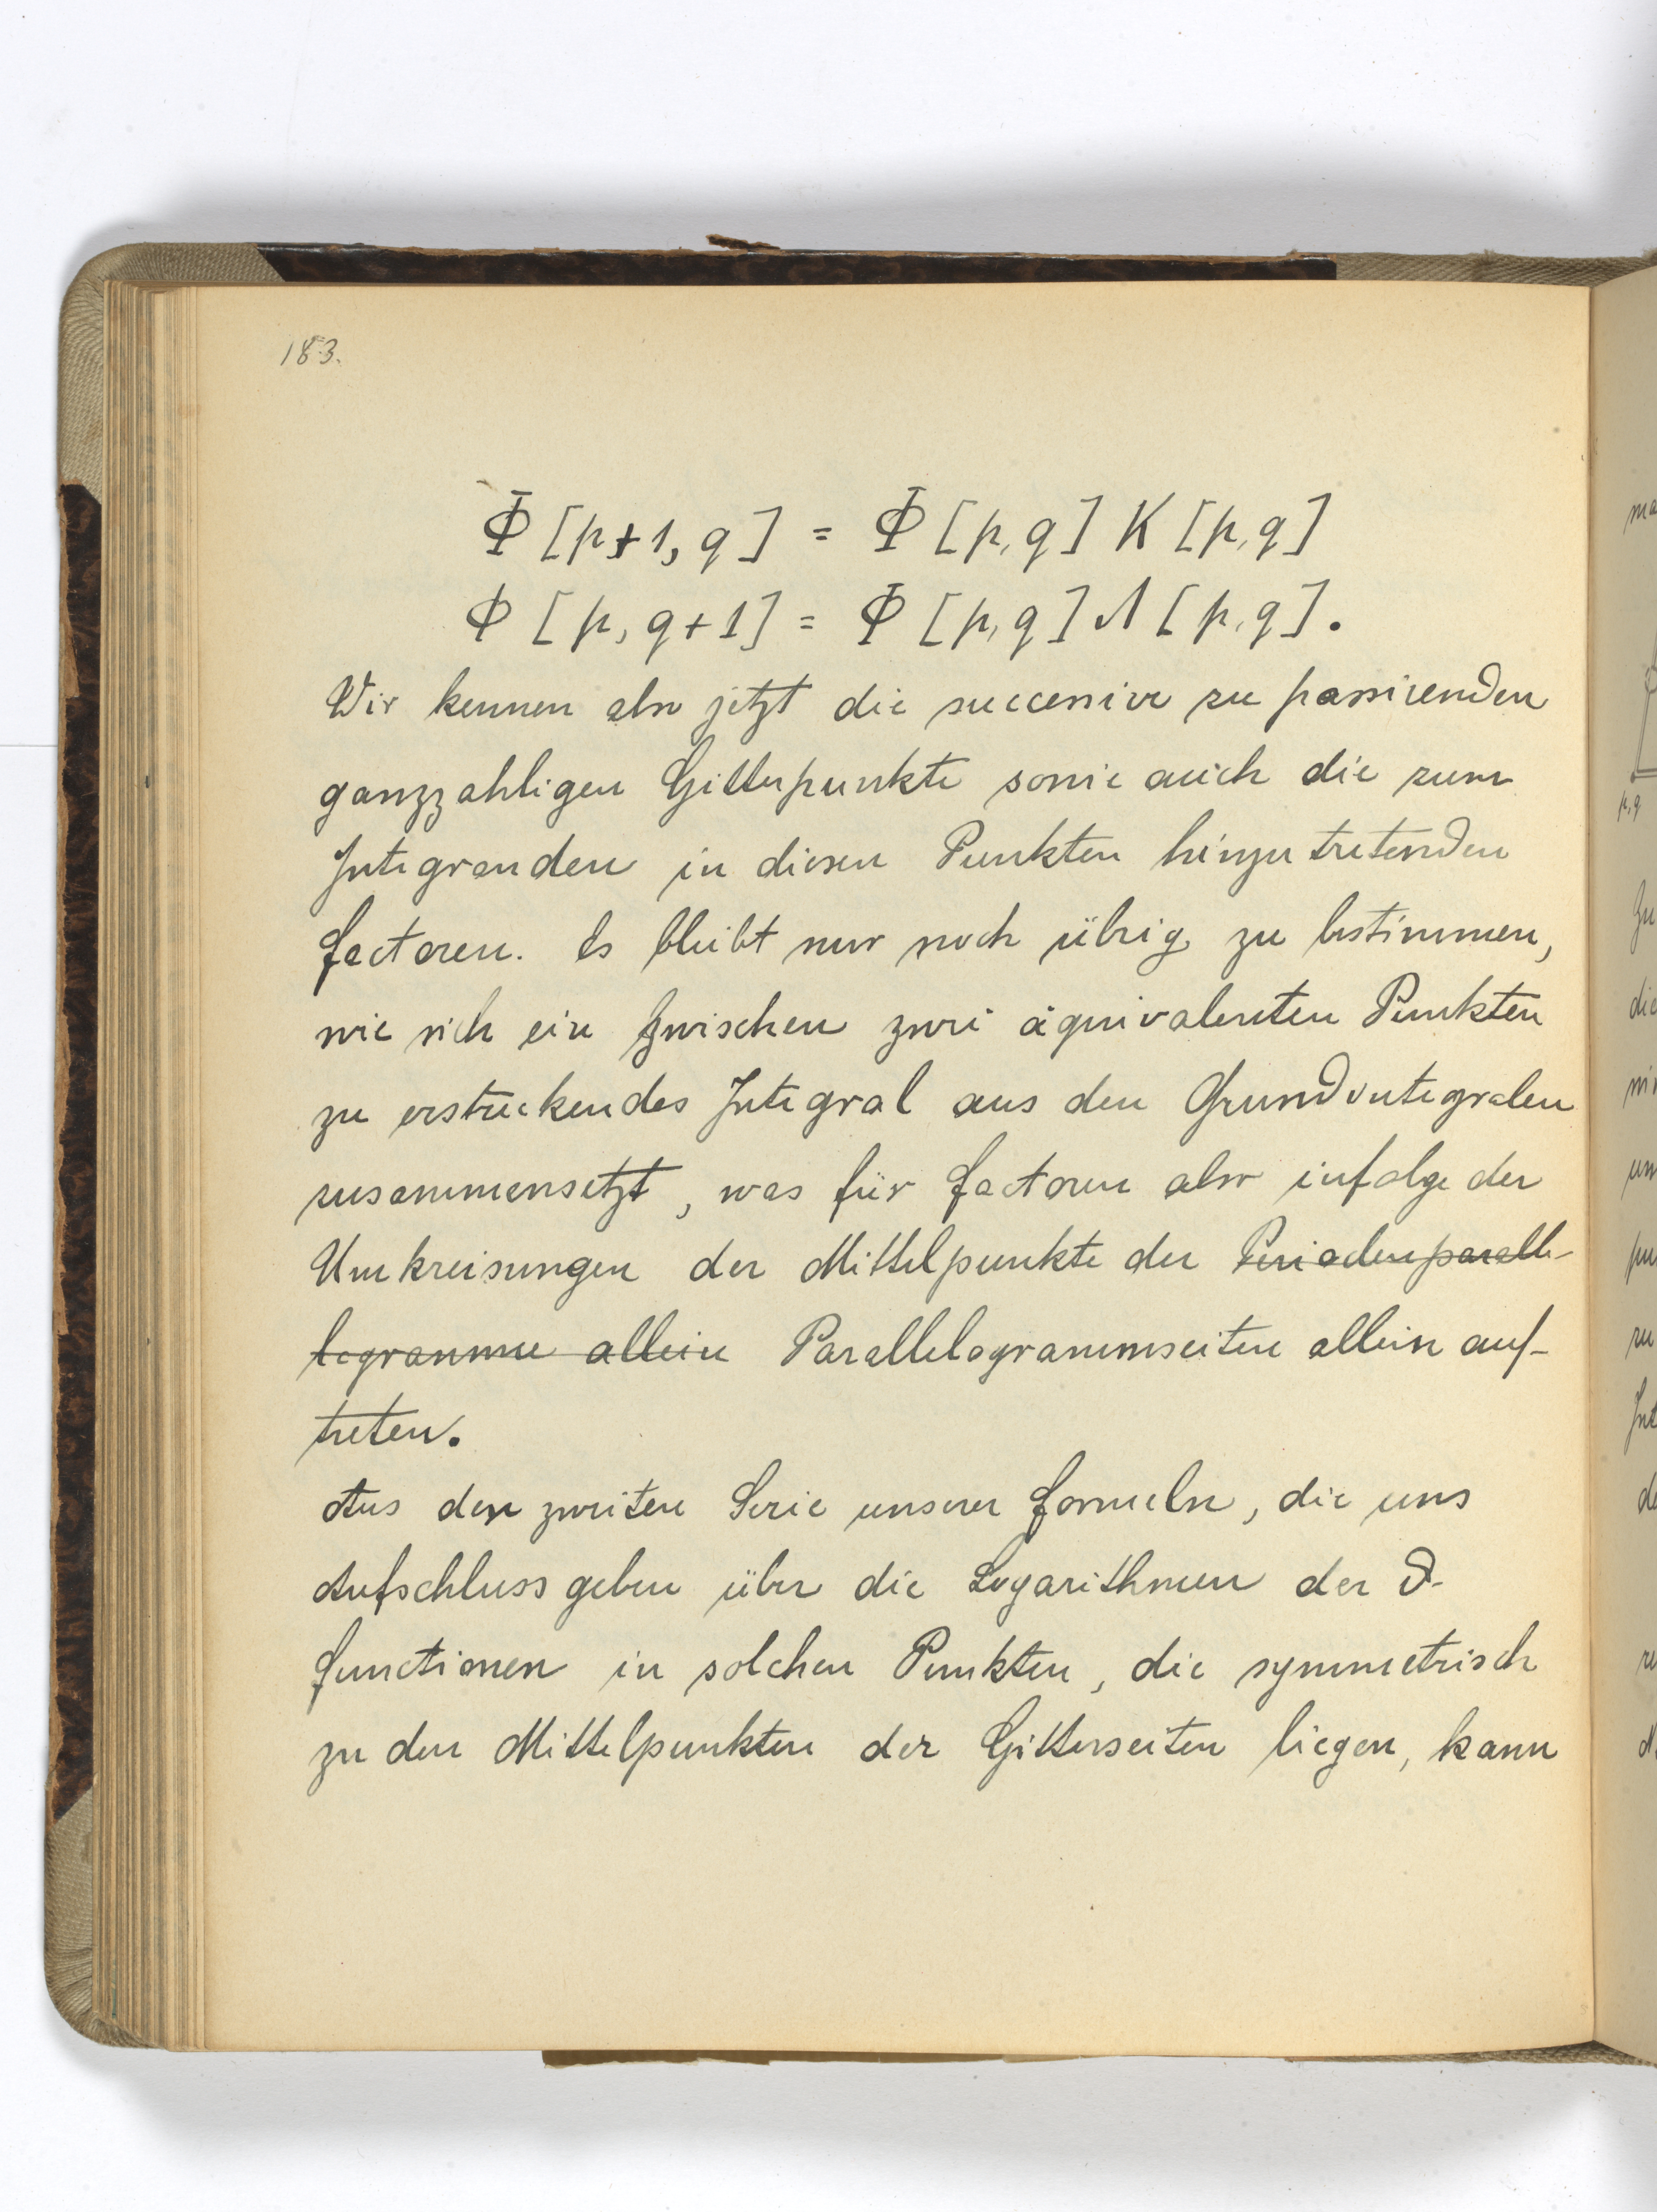 183.
Φ [p+1, q] = Φ [p,q] K [p,q]
Φ [p, q+1] = Φ [p,q] Λ [p,q].
Wir kennen also jetzt die successive zu passirenden
ganzzahligen Gitterpunkte sowie auch die zum
Integranden in diesen Punkten hinzutretenden
Factoren. Es bleibt nur noch übrig zu bestimmen,
wie sich ein zwischen zwei äquivalenten Punkten
zu erstreckendes Integral aus den Grundintegralen
zusammensetzt, was für Factoren also infolge der
Umkreisungen der Mittelpunkte der Periodenparalle-
logramme allein Parallelogrammseiten allein auf-
treten.
Aus der zweiten Serie unserer Formeln, die uns
Aufschluss geben über die Logarithmen der ϑ-
functionen in solchen Punkten, die symmetrisch
zu den Mittelpunkten der Gitterseiten liegen, kann
p,q